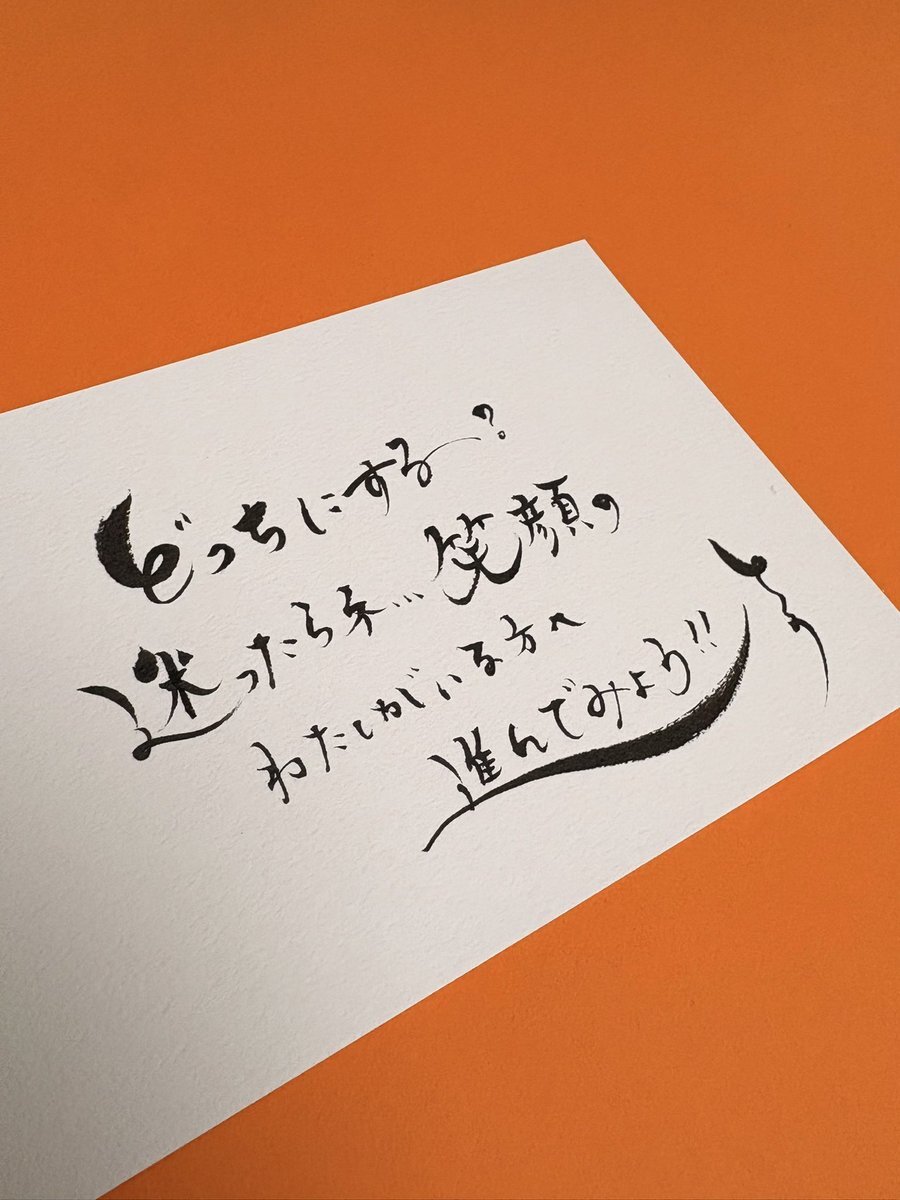 どっちにする?
迷ったらネ…笑顔の
わたしがいる方へ
進んでみよう!!